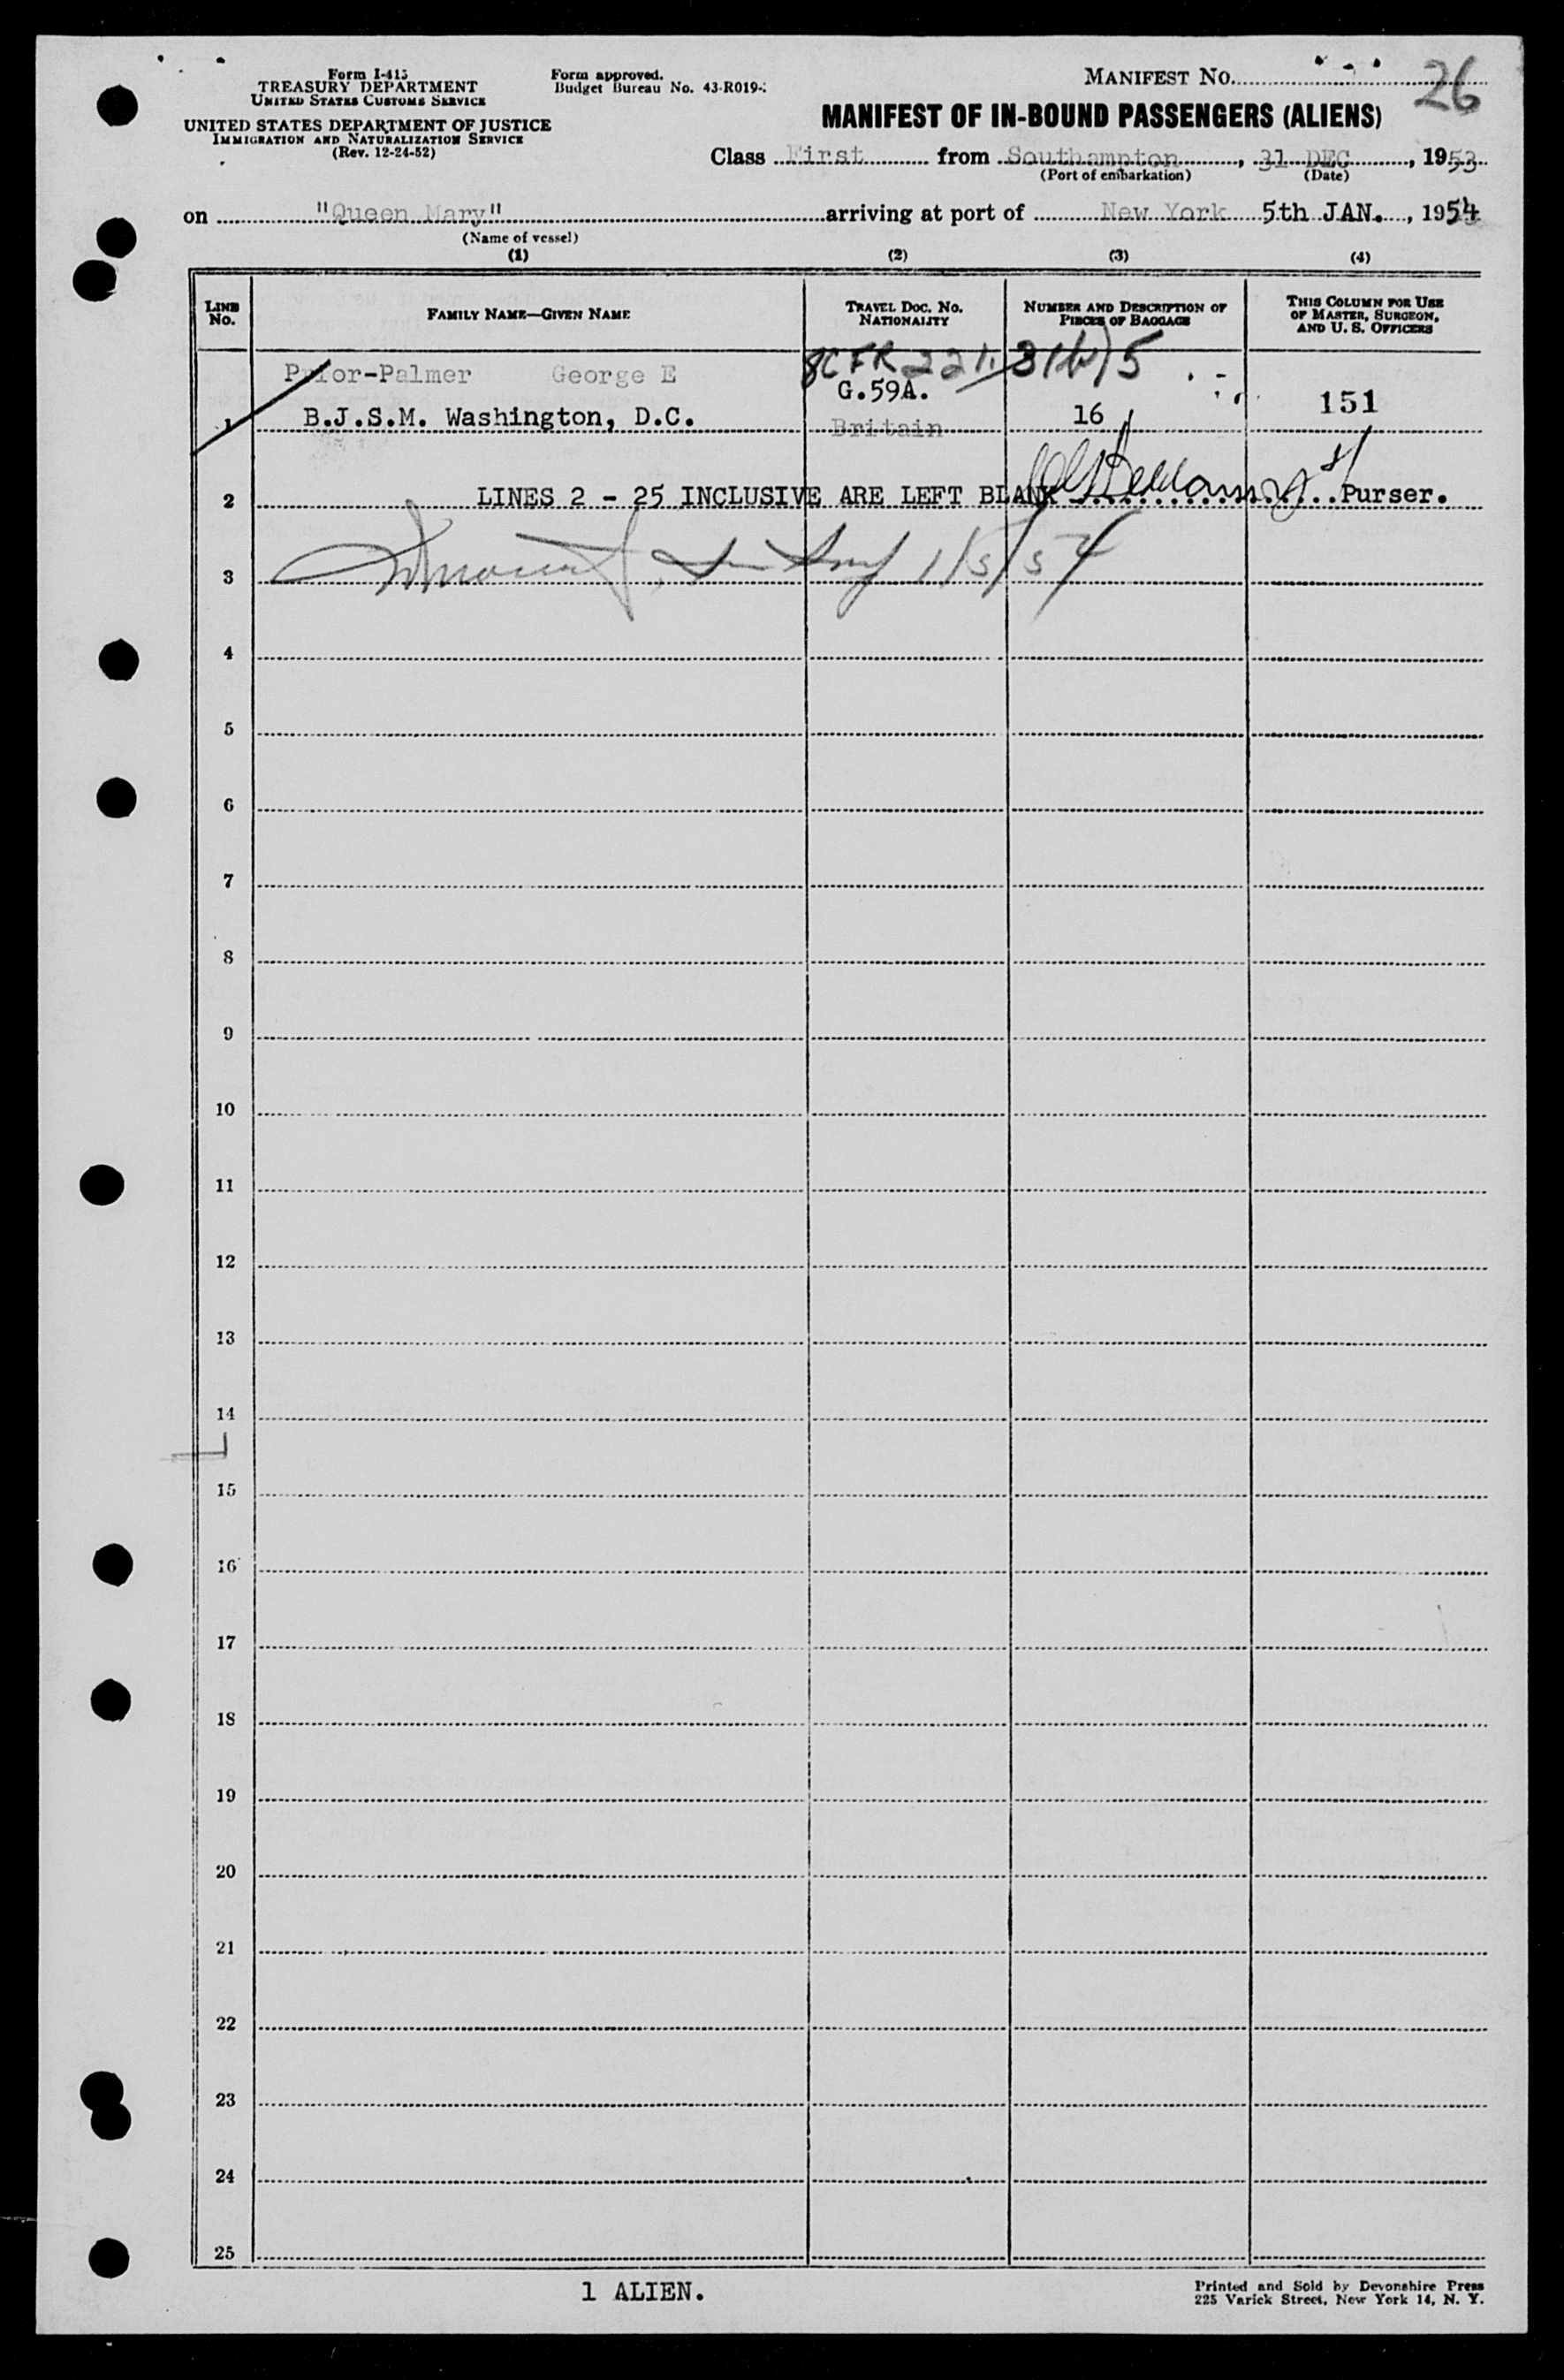 Form I-415
TREASURY DEPARTMENT
UNITED STATES CUSTOMS SERVICE
UNITED STATES DEPARTMENT OF JUSTICE
IMMIGRATION AND NATURALIZATION SERVICE
(Rev. 12-24-52)
Form approved.
Budget Bureau No. 43-R019-
MANIFEST NO. 26
MANIFEST OF IN-BOUND PASSENGERS (ALIENS)
Class First from Southampton, 31 DEC, 1953
(Port of embarkation) (Date)
on "Queen Mary" arriving at port of New York 5th JAN., 1954
(Name of vessel)
(1) (2) (3) (4)
LINE No.
FAMILY NAME—GIVEN NAME
TRAVEL DOC. NO. NATIONALITY
NUMBER AND DESCRIPTION OF PIECES OF BAGGAGE
THIS COLUMN FOR USE OF MASTER, SURGEON, AND U. S. OFFICERS
8CFR 221.3(b)5
Prior-Palmer George E G.59A.
1 B.J.S.M. Washington, D.C. Britain 16 151
2 LINES 2 - 25 INCLUSIVE ARE LEFT BLANK Purser.
3 1/5/54
4
5
6
7
8
9
10
11
12
13
14
15
16
17
18
19
20
21
22
23
24
25
1 ALIEN.
Printed and Sold by Devonshire Press
225 Varick Street, New York 14, N. Y.